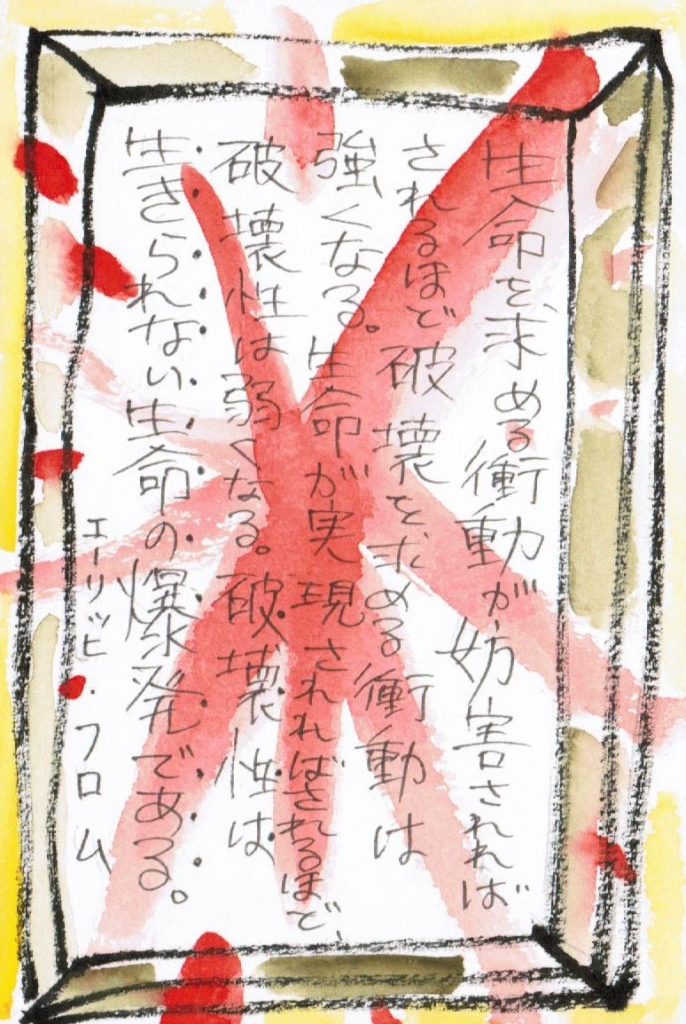 生命を求める衝動が妨害されれば
されるほど破壊を求める衝動は
強くなる。生命が実現されればされるほど、
破壊性は弱くなる。破壊性は
生きられない生命の爆発である。
エーリッヒ・フロム